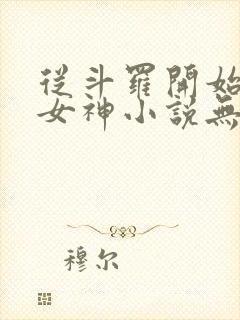 從斗羅開始
女神小說無
穆尔